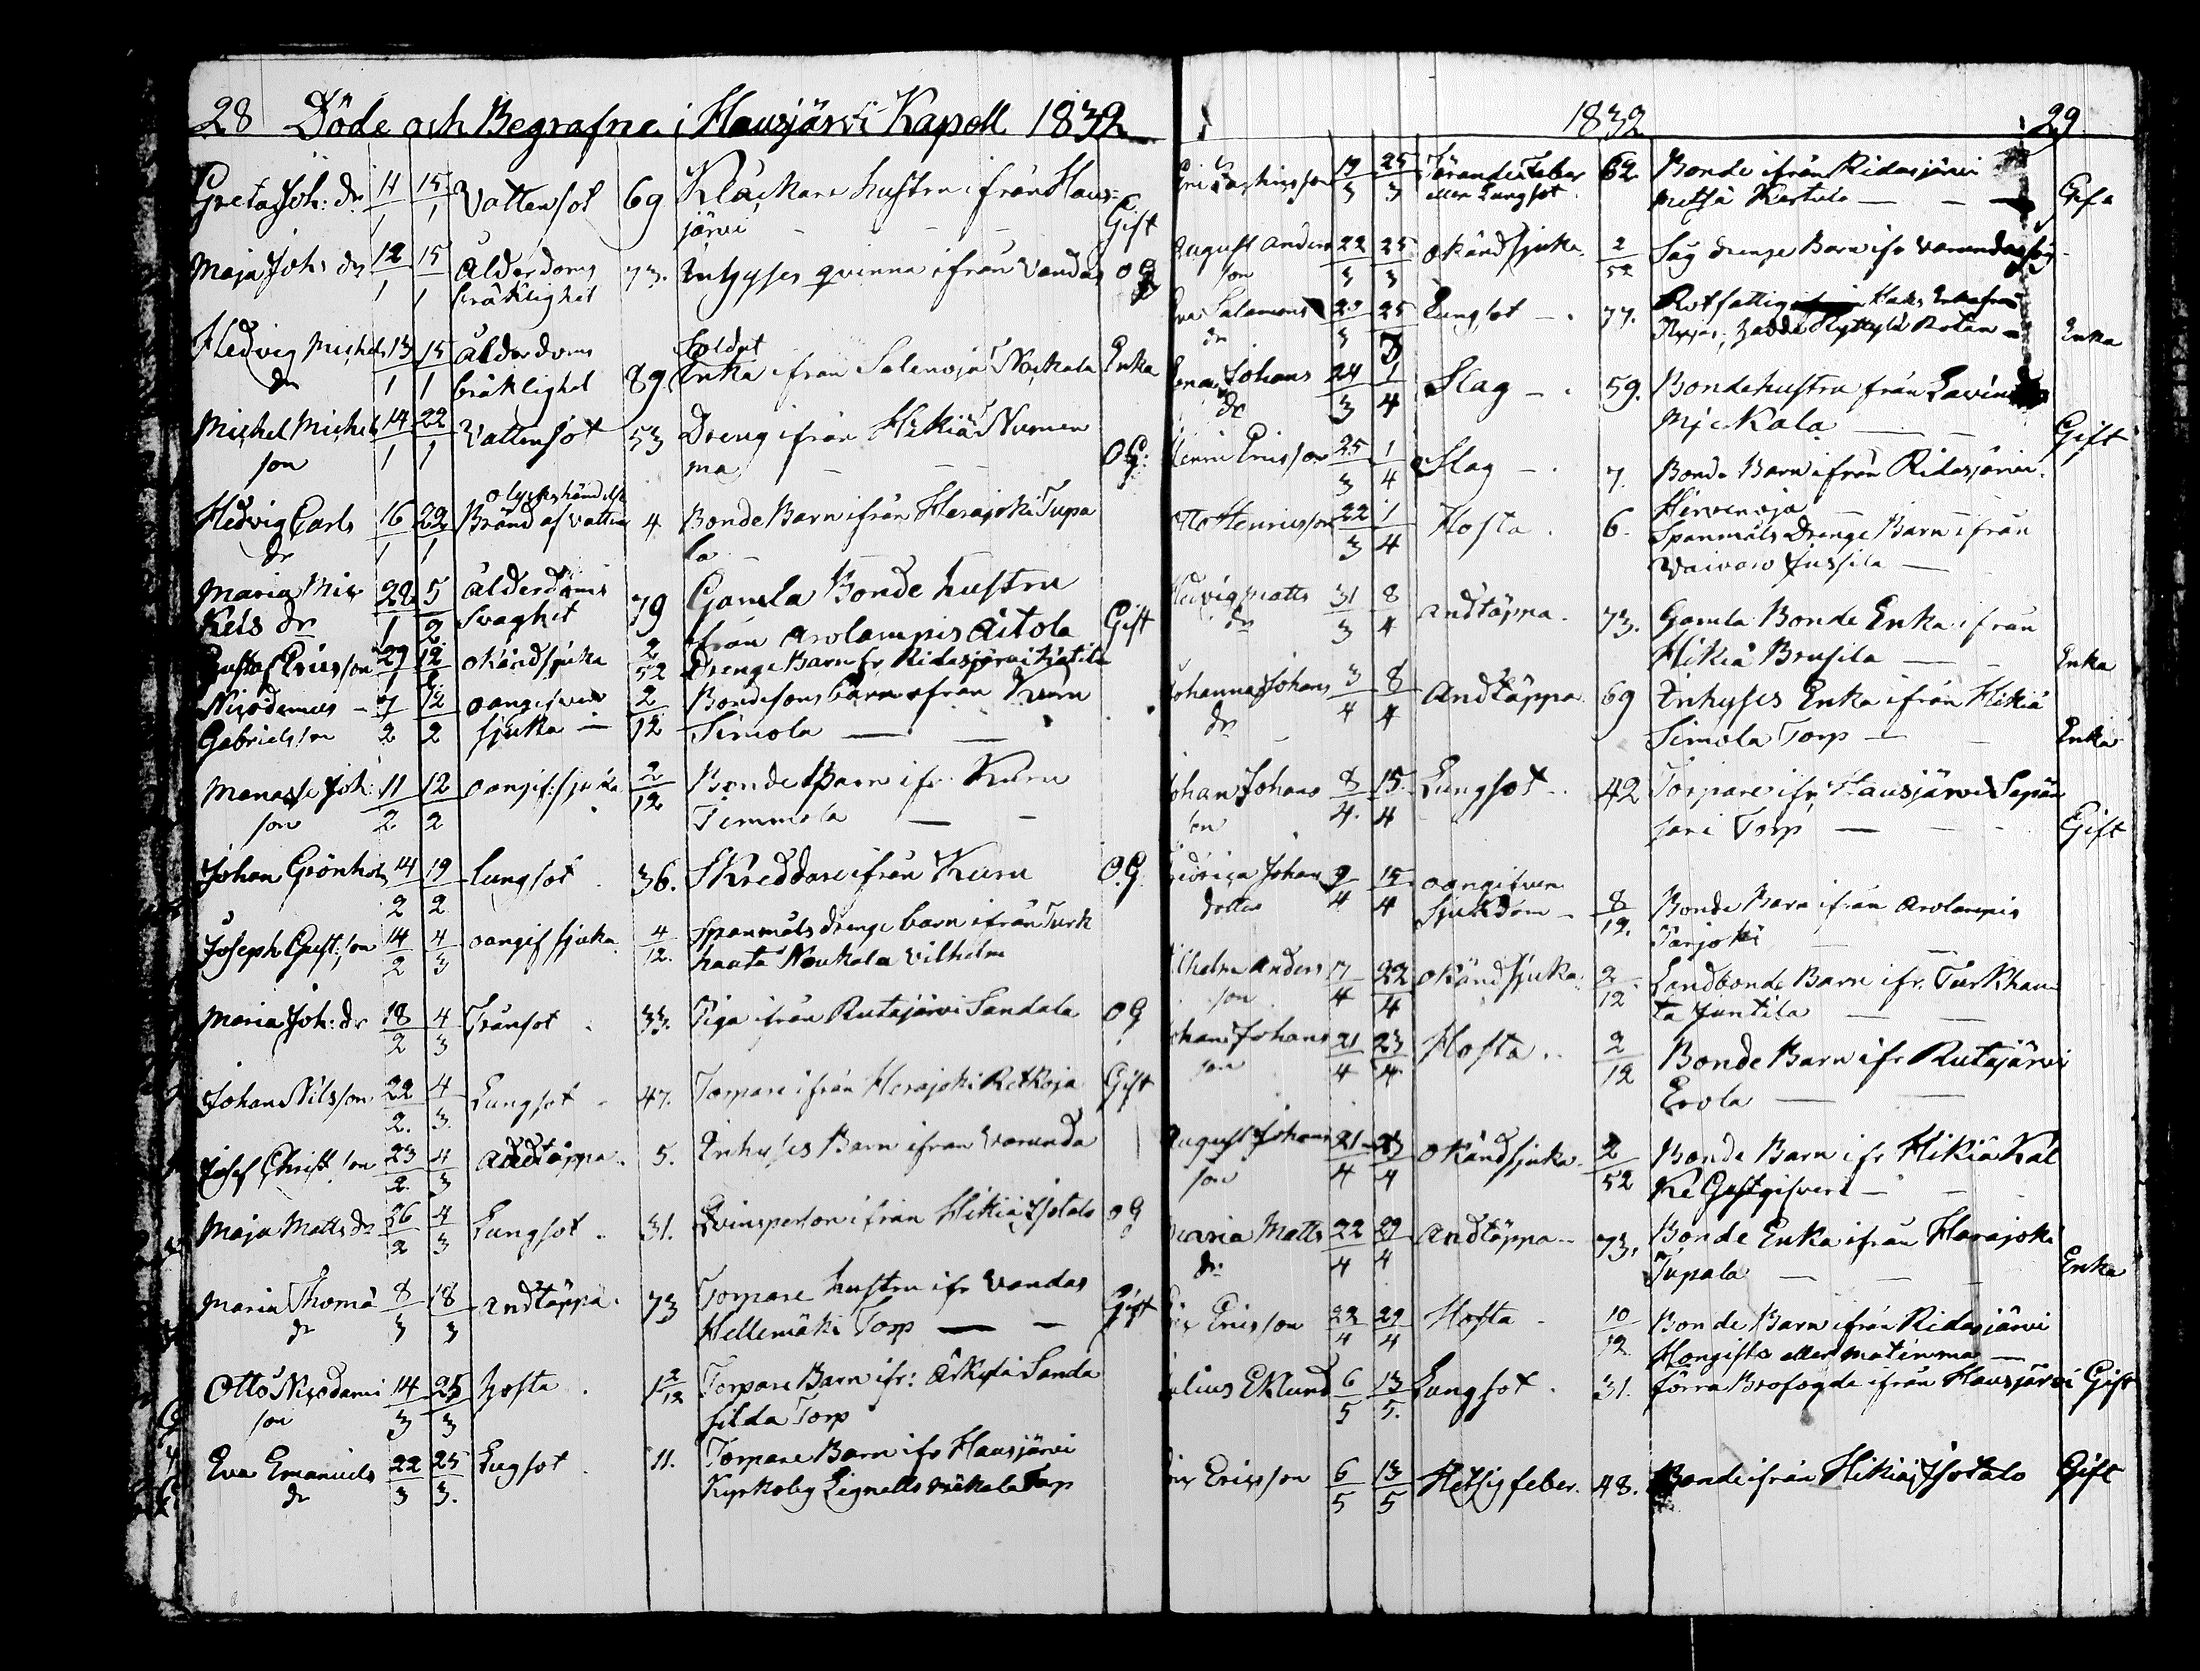 28 Döde och Begrafne i Hausjärvi Kapell 1832
Greta Joh: dr 11/1 15/1 Vattensot 69 Kläckare hustru ifrån Haus=
järvi - - - Gift
Maja Johs dr 12/1 15/1 Ålderdoms 73. Inhyses qvinna ifrån Vandas OG
bräklighet
Hedvig Michels 13/1 15/1 Ålderdoms 89 Soldat
dr bräklighet Enka ifrån Selenoja Nickala Enka
Michel Michels 14/1 22/1 Vattensot 53 Dreng ifrån Hikiä Numen
son ma - - OG:
Hedvig Carls 16/1 29/1 olyckshändelse
dr Bränd af vatten 4 Bonde Barn ifrån Herajoki Tupa
la
Maria Mic 22/1 5/2 ålderdoms 79 Gamla Bonde hustru
kels dr svaghet från Arolampis Äitola Gift
Gustaf Ericsson 29/1 12/2 okänd sjuka 2/52 Drenge Barn fr Ridasjärvi Hätila
Nicodemus - 7/2 12/2 oangifven 2/12 Bondesons barn ifrån Kuru
Gabrielsson sjuka - Simola —
Manasse Joh: 11/2 12/2 oangif: sjuka 2/12 Bonde Barn ifr Kuru
son Timmola — -
Johan Grönholm 14/2 19/2 Lungsot . 36. Skreddare ifrån Kuru O.G.
Joseph Gust: son 14/2 4/3 oangif sjuka 4/12. Spanmåls drenge barn ifrån Turk
hauta Naukala Vilhelm
Maria Joh: dr 18/2 4/3 Tränsot . 33. Piga ifrån Rutajärvi Sandala OG
Johan Nilsson 22/2. 4/3. Lungsot - 47. Torpare ifrån Herajoki Retkoja Gift
Josef Christ son 23/2. 4/3 Andtäppa. 5. Inhyses Barn ifrån Varunda
Maja Matts dr 26/2 4/3 Lungsot . 31. Qvinsperson ifrån Hikiä Isotalo OG
Maria Thomä 8/3 18/3 Andtäppa. 73 Torpare hustru ifr Vandas
dr Hellemäki Torp — - Gift
Otto Nicodemi 14/3 25/3 Hosta . 1 2/12 Torpare Barn ifr: Sanda
son silda Torp
Eva Emanuels 22/3 25/3. Lugsot . 11. Torpare Barn ifr Hausjärvi
dr Kyrkoby Lignells Torp
1832 29
19/3 25/3 Tärande Feber 62 Bonde ifrån Ridasjärvi
eller Lungsot. Metsä Kertula — - — Gift
August Anders 22/3 25/3 okänd sjuka. 2/52 Såg drenge Barn ifr Varunda såg
son
Eva Salomons 23/3 25/3 Lungsot -. 77. Rotfattig Hans Enka från
dr Rotan Enka
Johans 24/3 1/4 Slag -. 59. Bondehustru från
dr Mickala — - Gift
Henric Ericsson 25/3 1/4 Slag -. 7. Bonde Barn ifrån Ridasjärvi.
Hirvenoja —
Otto Henricsson 22/3 1/4 Hosta . 6. Spanmåls Drenge Barn ifrån
Vaivaro Jussila —
Hedvig Matts 31/3 8/4 Andtäppa. 73. Gamla Bonde Enka ifrån
dr Hikiä Brusila — - Enka
Johanna Johans 3/4 8/4 Andtäppa. 69 Inhyses Enka ifrån Hikiä
dr Simola Torp — - Enka
Johan Johans 8/4. 15/4 Lungsot .. 42 Torpare ifr Hausjärvi Sepän
son sari Torp — - - Gift
Fridrica Johans 9/4 15/4 oangifven 8/12. Bonde Barn ifrån Arolampis
dotter Sjukdom - Tarjoki
Vilhelm Anders 17/4 22/4 okänd sjuka. 2/12. Landbonde Barn ifr. Turkhau
son ta Juntila —
Johan Johans 21/4 23/4 Hosta .. 2/12 Bonde Barn ifr Rutajärvi
son Erola — —
August Johans 21/4 23/4 okänd sjuka. 2/52 Bonde Barn ifr Hikiä Käl
son ki Gästgifveri - -
Maria Matts 22/4 29/4 Andtäppa - 73, Bonde Enka ifrån Harajoki
dr Tupala — — - Enka
Eric Ericsson 22/4 29/4 Hosta - 10/12 Bonde Barn ifrån Ridasjärvi
Hongisto eller Matinma —
Julius Eklund 6/5 13/5. Lungsot . 31. förra Brofogde ifrån Hausjärvi Gift
Eric Ericsson 6/5 13/5 Hetsig feber. 48. Bonde ifrån Hikiä Isotalo Gift